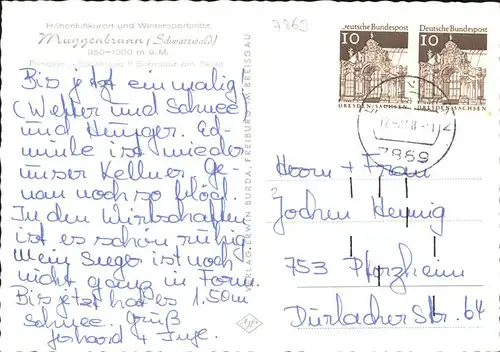 Höhenluftkurort und Wintersportplatz
Muggenbrunn (Schwarzwald)
950-1000 m ü. M.
7869
Bis jetzt einmalig
(Wetter und Schnee
und Hunger. Ed-
ist wieder
unser Kellner. Ge-
nau noch so blöd.
In den Wirtschaften
ist es schön ruhig.
Mein Sieger ist noch
nicht ganz in Form.
Bis jetzt hat es 1.50m
Schnee. Gruß
Gerhard + Inge.
VERLAG ERWIN BURDA, FREIBURG IM BREISGAU
Agfa
Deutsche Bundespost
10
DRESDEN/SACHSEN
Deutsche Bundespost
10
DRESDEN/SACHSEN
7869
Herrn + Frau
Jochen Hennig
753 Pforzheim
Durlacher Str. 64